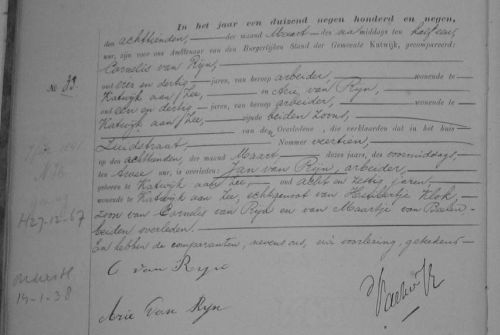 In het jaar een duizend negen honderd en negen,
den achttienden, der maand Maart des namiddags ten half een
ure, zijn voor ons Ambtenaar van den Burgerlijken Stand der Gemeente Katwijk, gecompareerd:
Cornelis van Rijn,
oud vier en dertig jaren, van beroep arbeider, wonende te
No 33
Katwijk aan Zee, en Arie van Rijn,
oud een en dertig jaren, van beroep arbeider, wonende te
Katwijk aan Zee, zijnde beiden zoons,
van den Overledene, die verklaarden dat in het huis
Zuidstraat, Nommer veertien,
op den achttienden, der maand Maart dezes jaars, des voormiddags,
ten ure, is overleden: Jan van Rijn, arbeider,
geboren te Katwijk aan Zee, oud acht en zestig jaren
wonende te Katwijk aan Zee, echtgenoot van Huibertje Klok,
zoon van Cornelis van Rijn en van Maartje van Beelen
beiden overleden.
En hebben de comparanten, nevens ons, na voorlezing, geteekend
H27-12-67
14-1-38
C van Rijn
Arie van Rijn